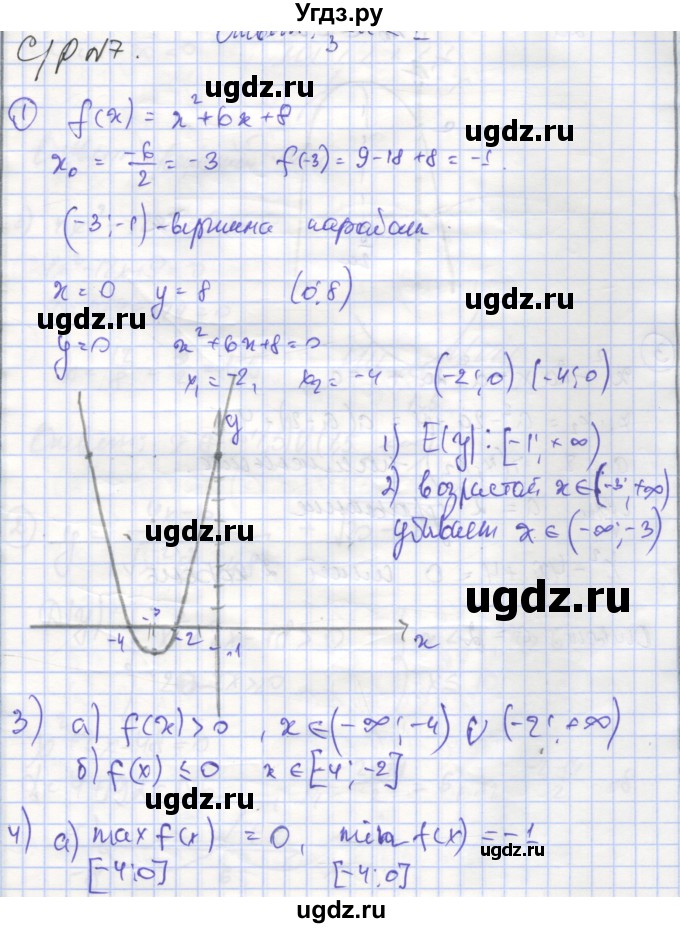 Угдз.ру
С/Р №7.
ugdz.ru
ugdz.ru
① f(x) = x²+6x+8
x₀ = -6/2 = -3 f(-3) = 9-18+8 = -1.
(-3; -1) - вершина параболы
ugdz.ru
x = 0 y = 8 (0; 8)
ugdz.ru
ugdz.ru
y=0 x²+6x+8=0
x₁ = -2, x₂ = -4 (-2; 0) (-4; 0)
y
1) E(y): [-1; +∞)
2) возрастай x∈(-3; +∞)
убывает x∈(-∞; -3)
ugdz.ru
ugdz.ru
-4 -3 -2 -1 x
3) а) f(x)>0, x∈(-∞; -4) ∪ (-2; +∞)
ugdz.ru
б) f(x) ≤ 0 x∈[-4; -2]
ugdz.ru
4) а) max f(x) = 0, min f(x) = -1
[-4; 0] [-4; 0]
ugdz.ru
ugdz.ru